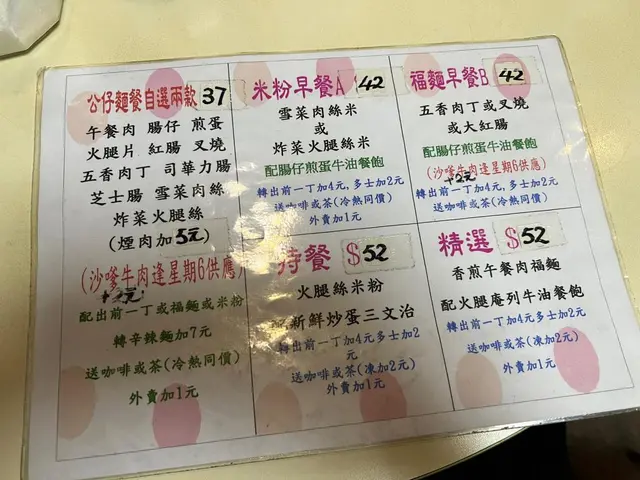 公仔麵餐自選兩款 37
午餐肉 腸仔 煎蛋
火腿片 紅腸 叉燒
五香肉丁 司華力腸
芝士腸 雪菜肉絲
炸菜火腿絲
(煙肉加5元)
(沙嗲牛肉逢星期6供應)
配出前一丁或福麵或米粉
轉辛辣麵加7元
送咖啡或茶(冷熱同價)
外賣加1元
米粉早餐A 42
雪菜肉絲米
或
炸菜火腿絲米
配腸仔煎蛋牛油餐飽
轉出前一丁加4元,多士加2元
送咖啡或茶(冷熱同價)
外賣加1元
福麵早餐B 42
五香肉丁或叉燒
或大紅腸
配腸仔煎蛋牛油餐飽
(沙嗲牛肉逢星期6供應)
+2元
轉出前一丁加4元,多士加2元
送咖啡或茶(冷熱同價)
特餐 $52
火腿絲米粉
新鮮炒蛋三文治
轉出前一丁加4元多士加2
元
送咖啡或茶(凍加2元)
外賣加1元
精選 $52
香煎午餐肉福麵
配火腿庵列牛油餐飽
轉出前一丁加4元多士加2元
送咖啡或茶(凍加2元)
外賣加1元